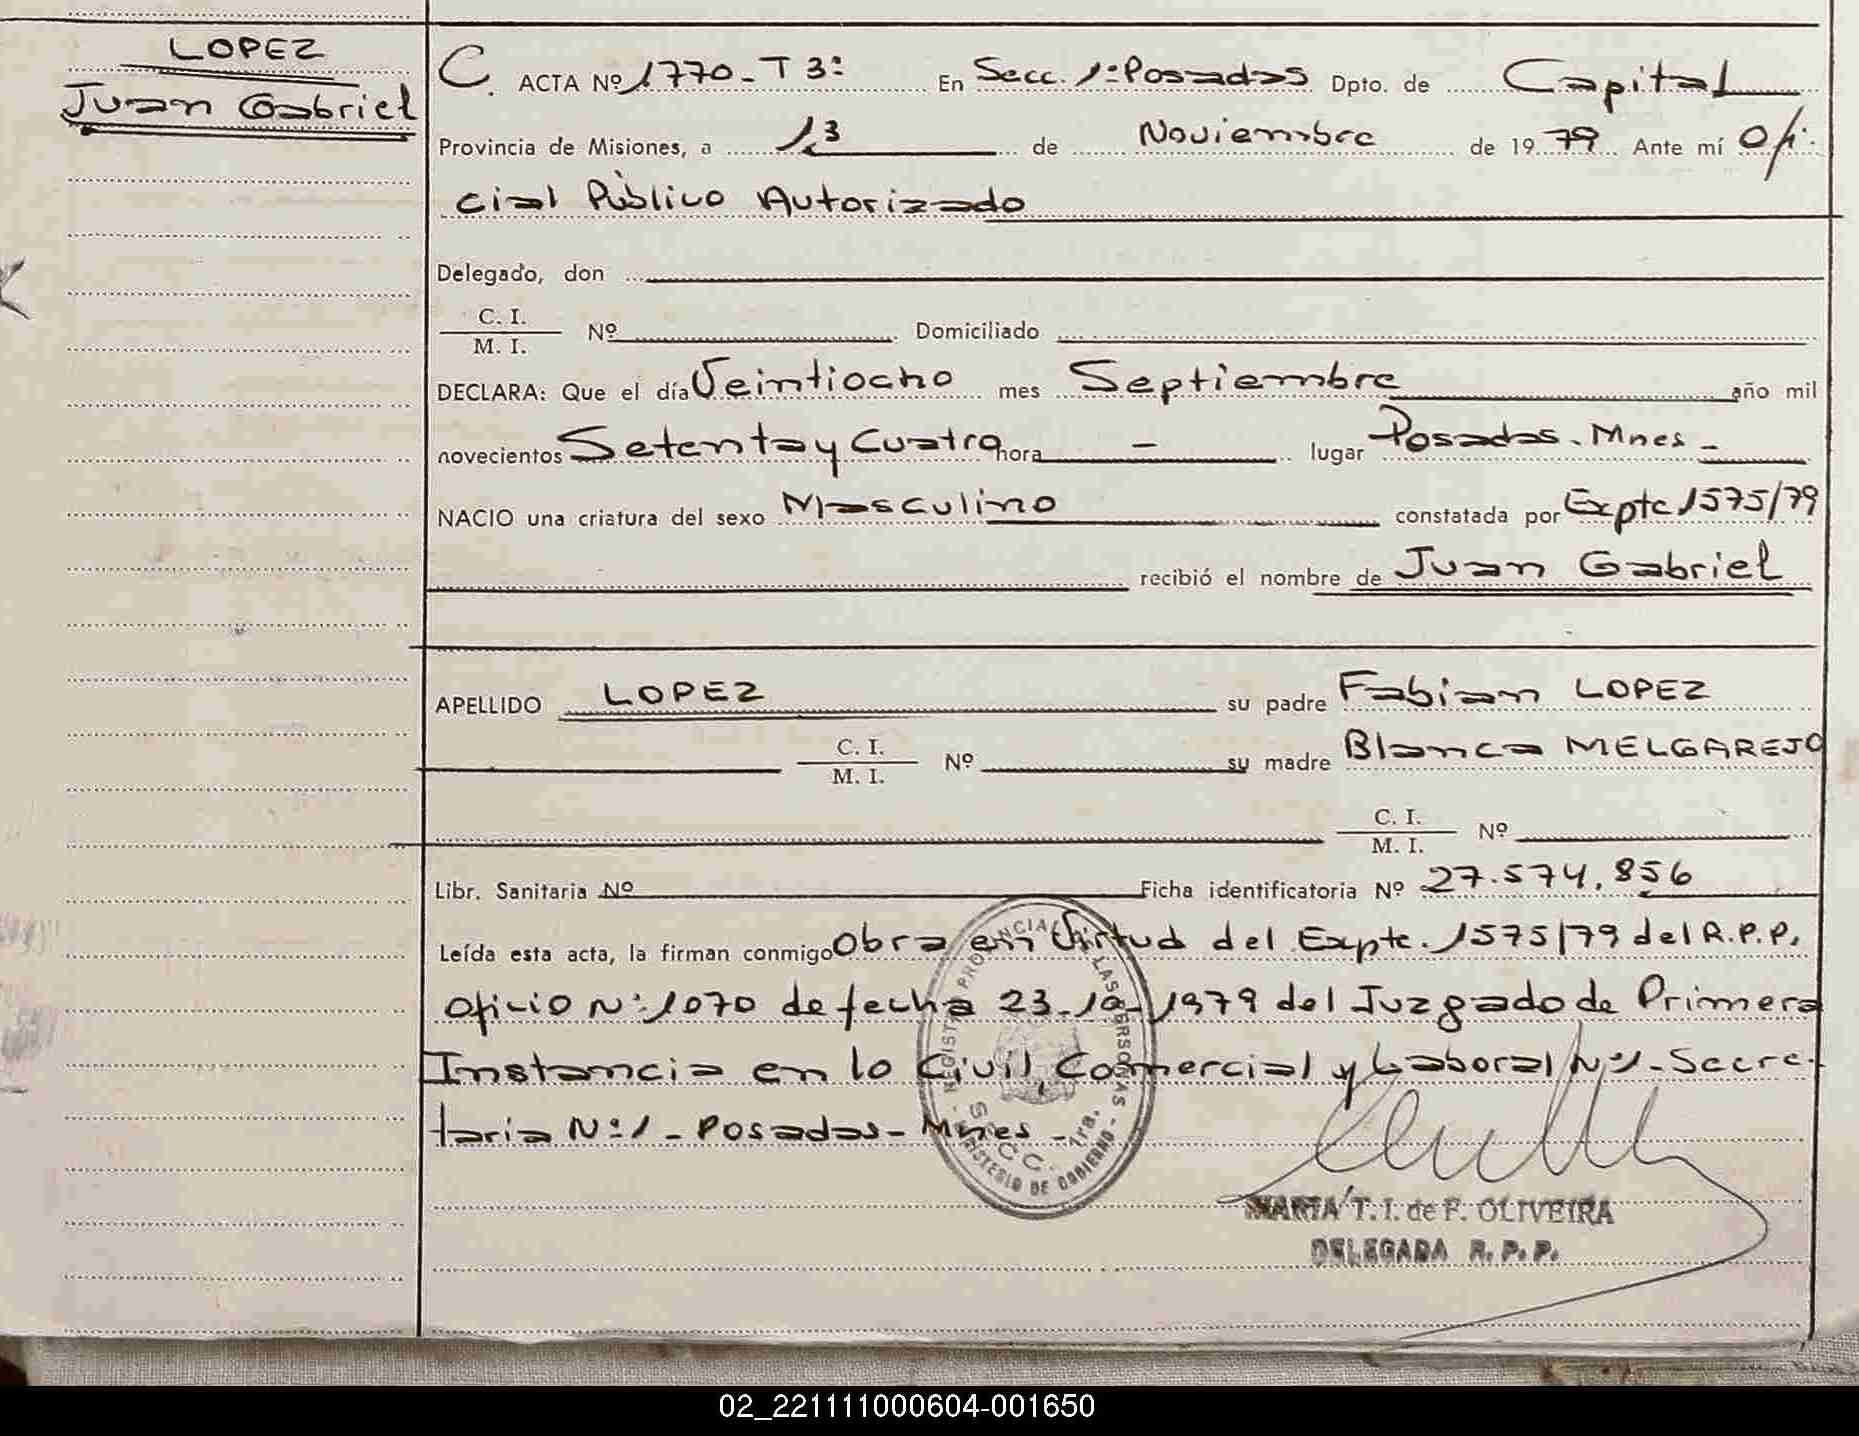 LOPEZ
Juan Gabriel
C. ACTA Nº 1770-T 3º En Secc. 1º Posadas Dpto. de Capital
Provincia de Misiones, a 13 de Noviembre de 1979 Ante mí Ofi-
cial Público Autorizado
Delegado, don
C. I.
M. I.
Nº Domiciliado
DECLARA: Que el día Veintiocho mes Septiembre año mil
novecientos Setenta y Cuatro hora - lugar Posadas. Mnes -
NACIO una criatura del sexo Masculino constatada por Expte 1575/79
recibió el nombre de Juan Gabriel
APELLIDO LOPEZ su padre Fabian LOPEZ
C. I.
M. I.
Nº su madre Blanca MELGAREJO
C. I.
M. I.
Nº
Libr. Sanitaria Nº Ficha identificatoria Nº 27.574.856
Leída esta acta, la firman conmigo Obra en Virtud del Expte. 1575/79 del R.P.P.
Oficio Nº 1070 de fecha 23-10-1979 del Juzgado de Primera
Instancia en lo Civil, Comercial y Laboral Nº1-Secre-
taria Nº1 - Posadas - Mnes -
REGISTRO PROVINCIAL DE LAS PERSONAS
SECC. 1ra.
MINISTERIO DE GOBIERNO
MARIA T. I. de F. OLIVEIRA
DELEGADA R. P. P.
02_221111000604-001650